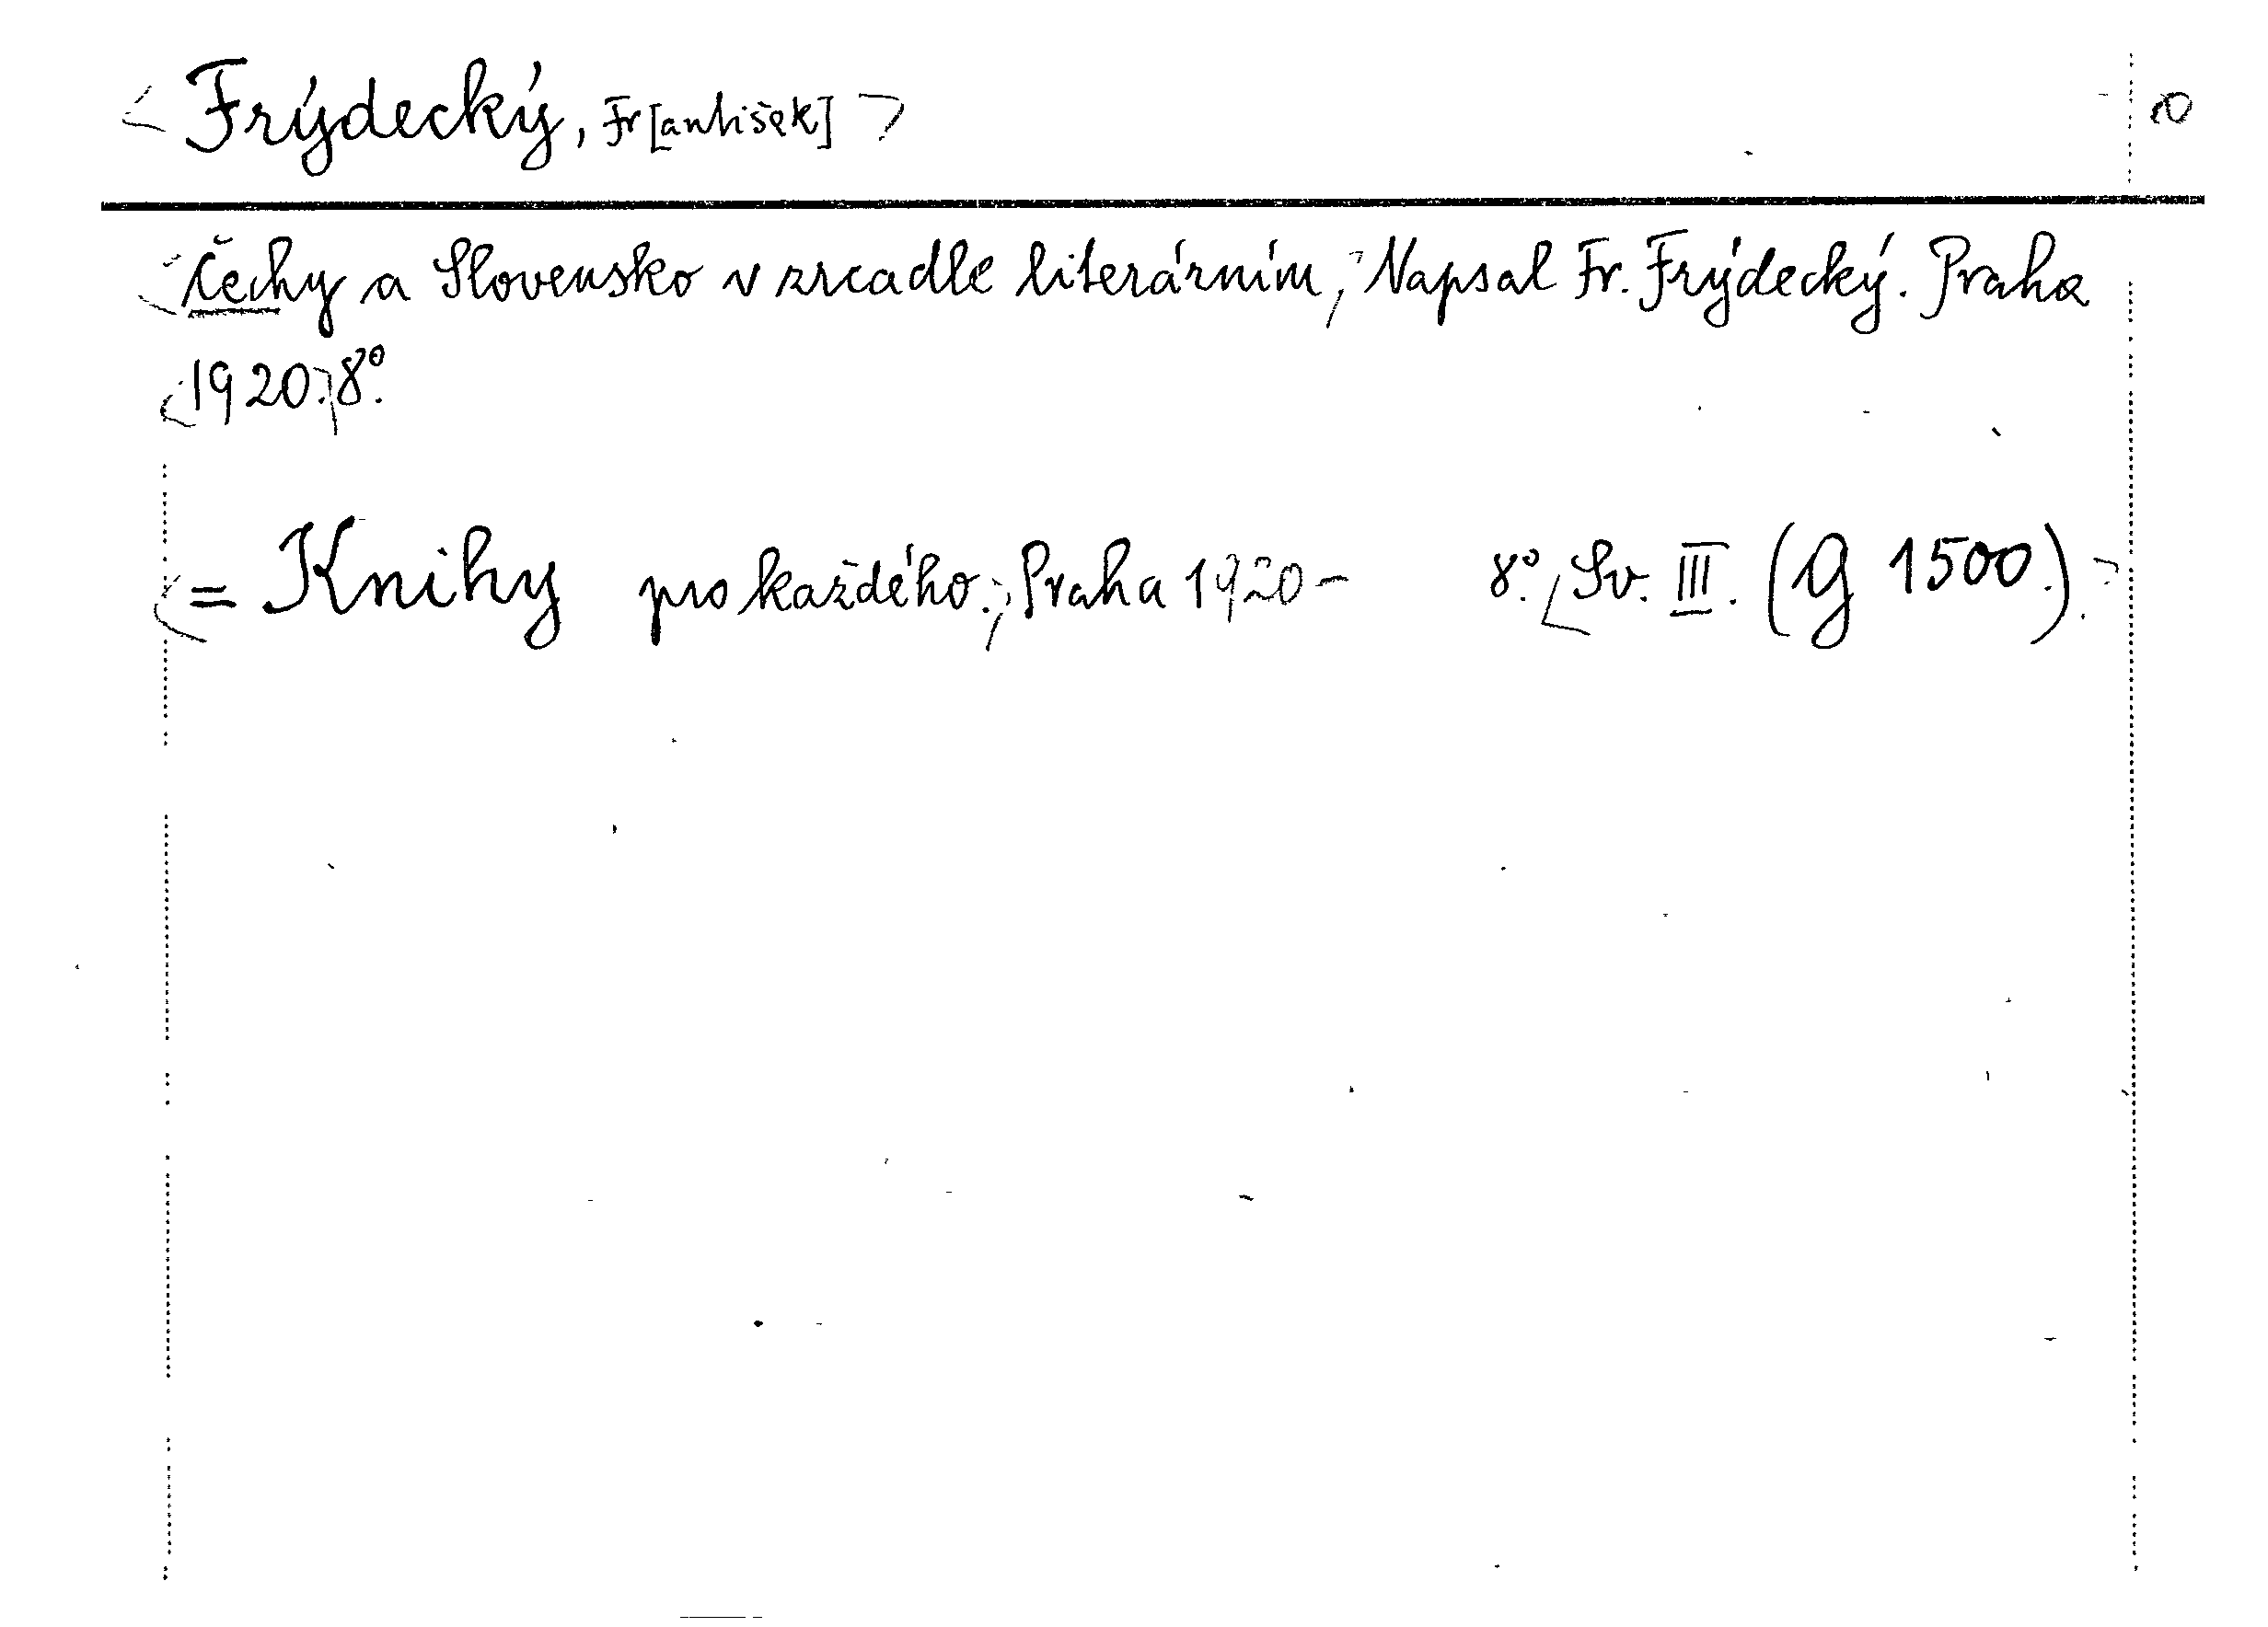 Frýdecký, Fr[antišek]
Čechy a Slovensko v zrcadle literárním, Napsal Fr. Frýdecký. Praha
1920. 8°.
= Knihy pro každého. Praha 1920- 8°. Sv. III. (G 1500.).